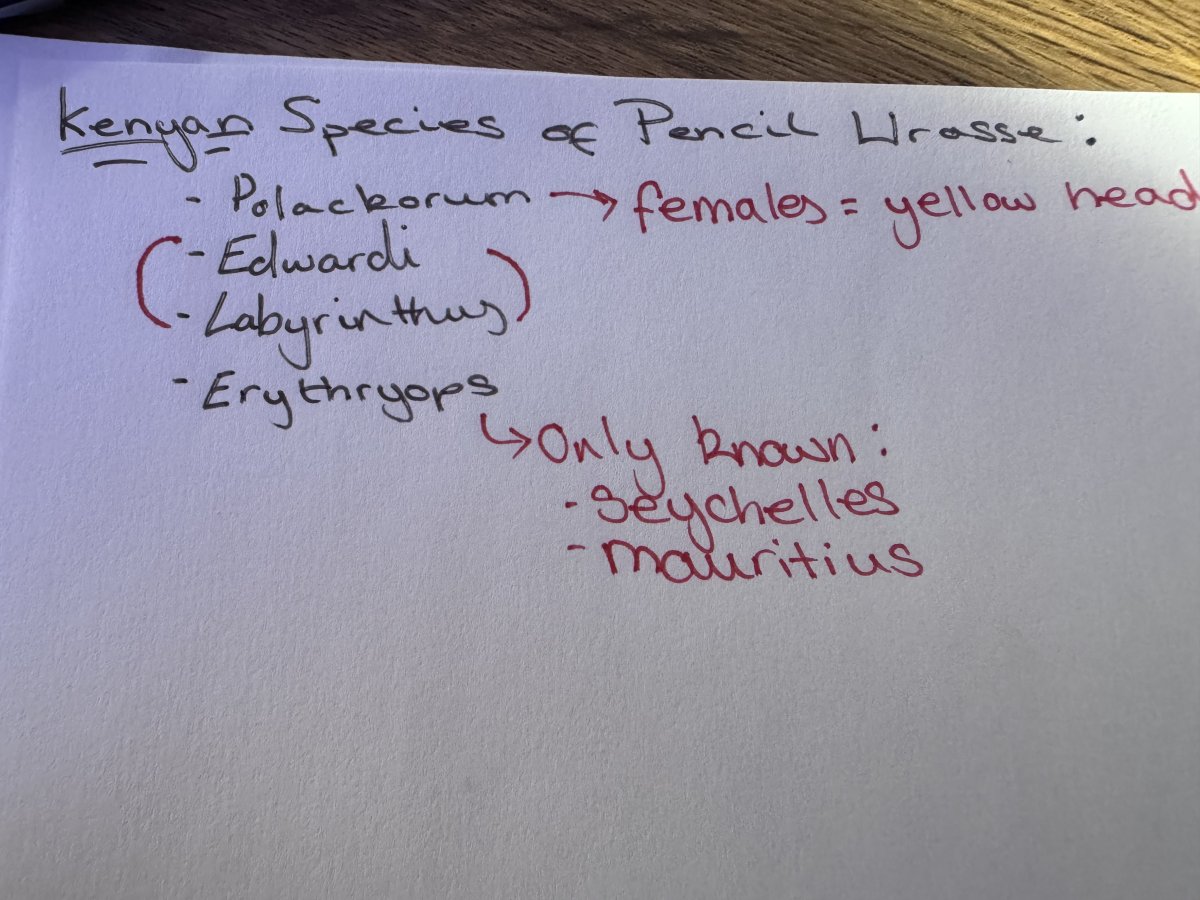 Kenyan Species of Pencil Wrasse:
- Polackorum → females = yellow head
(- Edwardi
- Labyrinthus)
- Erythryops
↳ Only known:
- Seychelles
- mauritius